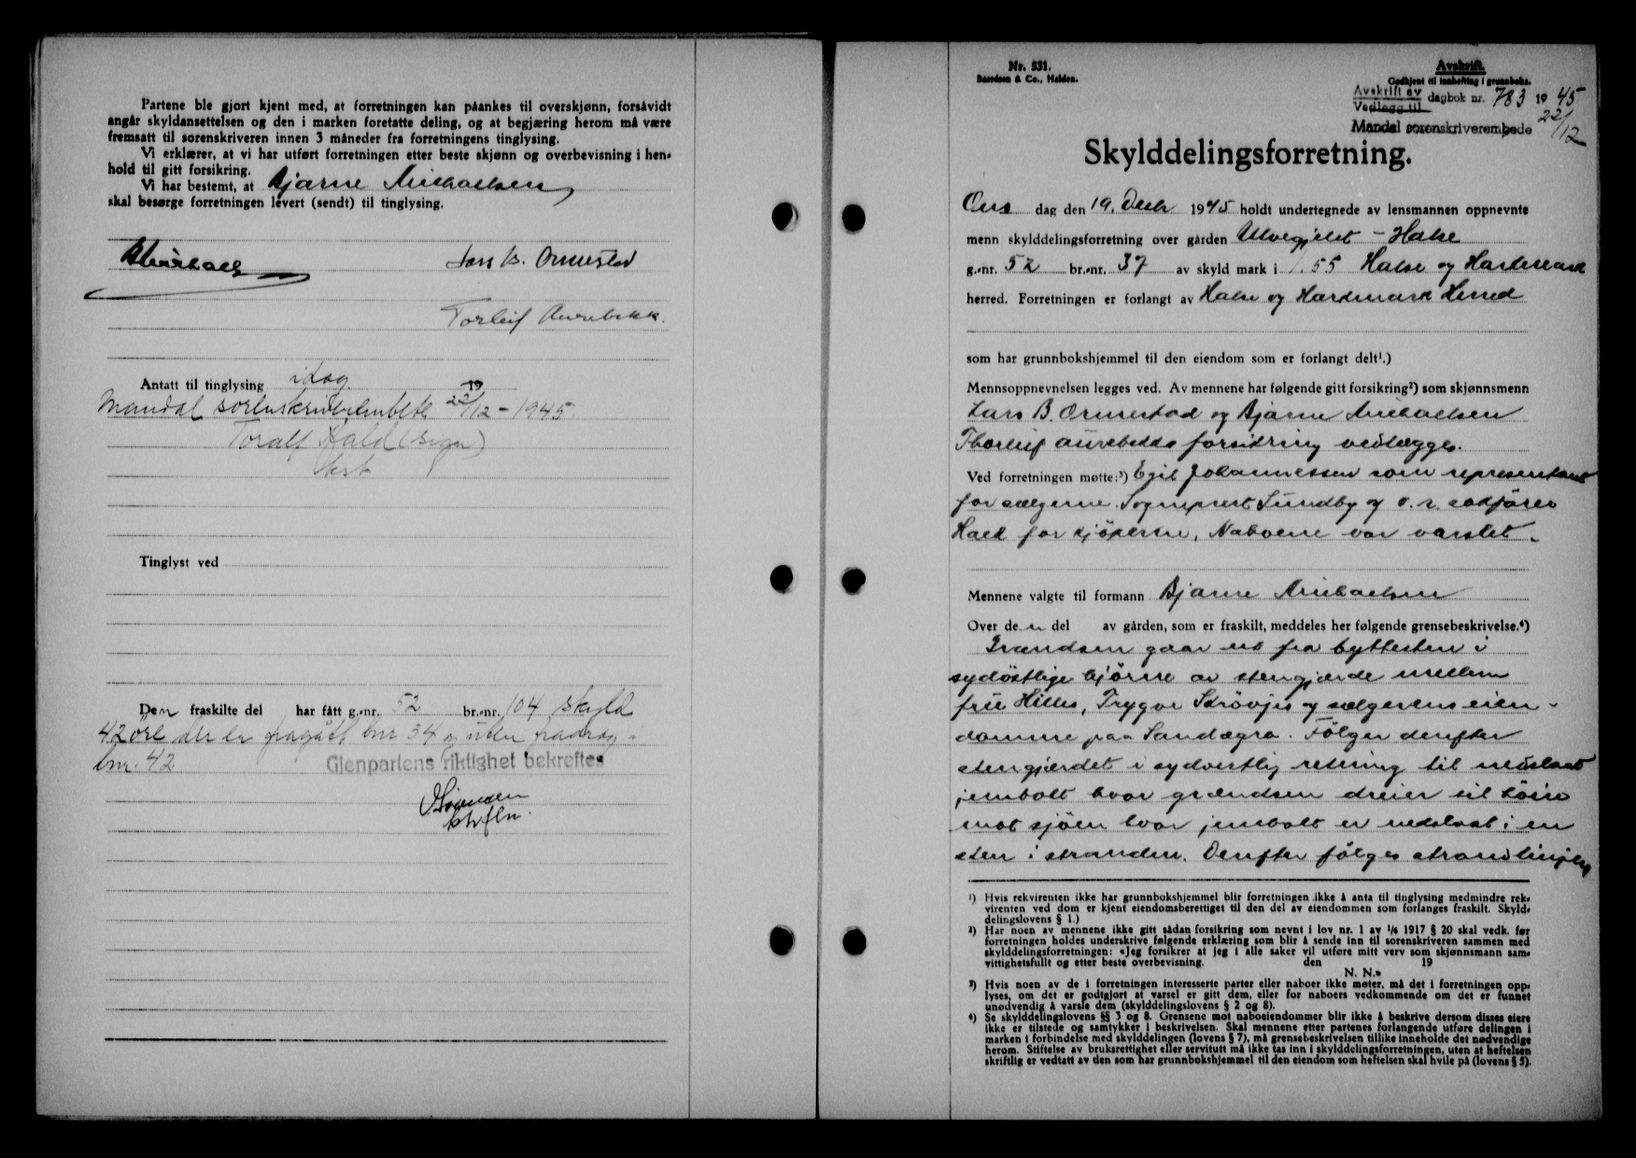 Partene ble gjort kjent med, at forretningen kan påankes til overskjønn, forsåvidt
angår skyldansettelsen og den i marken foretatte deling, og at begjæring herom må være
fremsatt til sorenskriveren innen 3 måneder fra forretningens tinglysing.
Vi erklærer, at vi har utført forretningen etter beste skjønn og overbevisning i hen-
hold til gitt forsikring.
Vi har bestemt, at Bjarne Michaelsen
skal besørge forretningen levert (sendt) til tinglysing.
Lars B. Ormestad
Torleif Aurebekk.
Antatt til tinglysing idag
Mandal sorenskriverembete 22/12-1945
Toralf Hald (sign)
Tinglyst ved
Den fraskilte del har fått g.-nr. 52 br.-nr. 104 skyld
42 øre der er fragått bnr 34 og uten fradrag
bnr. 42
Gjenpartens riktighet bekreftes
Nr. 531.
Baardsen & Co., Halden.
Avskrift.
Godkjent til innhefting i grunnboks.
Avskrift av
Vedlegg til dagbok nr. 783 1945
22/12
Mandal sorenskriverembede
Skylddelingsforretning.
Ons dag den 19. Desbr 1945 holdt undertegnede av lensmannen oppnevnte
menn skylddelingsforretning over gården Ulvegjelet - Halse
g.-nr. 52 br.-nr. 37 av skyld mark i 1.55 Halse og Harkmark
herred. Forretningen er forlangt av Halse og Harkmark Herred
som har grunnbokshjemmel til den eiendom som er forlangt delt¹.)
Mennsoppnevnelsen legges ved. Av mennene har følgende gitt forsikring²) som skjønnsmenn
Lars B. Ormestad og Bjarne Michaelsen
Thorleif Aurebekks forsikring vedlegges.
Ved forretningen møtte:³) Egil Johannessen som representant
for sælgerne. Sogneprest Sundby og o.r. sakfører
Hald for kjøperne, Naboene var varslet.
Mennene valgte til formann Bjarne Michaelsen
Over den del av gården, som er fraskilt, meddeles her følgende grensebeskrivelse.⁴)
Grændsen gaar ut fra byttesten i
sydöstlige hjörne av stengjærde mellem
frü Hilles, Trygve Strövjes og sælgerens eien-
domme paa Sandøgra. Fölger derefter
stengjærdet i sydvestlig retning til nedslaat
jernbolt hvor grændsen dreier til höire
mot sjöen hvor jernbolt er nedslaat i en
sten i stranden. Derefter fölges strandlinjen
¹) Hvis rekvirenten ikke har grunnbokshjemmel blir forretningen ikke å anta til tinglysing medmindre rek-
virenten ved dom er kjent eiendomsberettiget til den del av eiendommen som forlanges fraskilt. Skyld-
delingslovens § 1.)
²) Har noen av mennene ikke gitt sådan forsikring som nevnt i lov nr. 1 av 1/6 1917 § 20 skal vedk. før
forretningen holdes underskrive følgende erklæring som blir å sende inn til sorenskriveren sammen med
skylddelingsforretningen: «Jeg forsikrer at jeg i alle saker vil utføre mitt verv som skjønnsmann sam-
vittighetsfullt og etter beste overbevisning. den 19
N. N.»
³) Hvis noen av de i forretningen interesserte parter eller naboer ikke møter, må det i forretningen opp-
lyses, om det er godtgjort at varsel er gitt dem, eller for naboers vedkommende om det er funnet
unødvendig å varsle dem (skylddelingslovens § 2 og 8).
⁴) Se skylddelingslovens §§ 3 og 8. Grensene mot naboeiendommer blir ikke å beskrive dersom disses eiere
ikke er tilstede og samtykker i beskrivelsen. Skal mennene etter partenes forlangende utføre delingen i
marken i forbindelse med skylddelingen (lovens § 7), må grensebeskrivelsen tillike inneholde det nødvendige
herom. Stiftelse av bruksrettighet eller servitutt må ikke tas inn i skylddelingsforretningen, uten at heftelsen
skriftlig er vedtatt av den som har grunnbokshjemmel til den eiendom som heftelsen skal hvile på (lovens § 5).